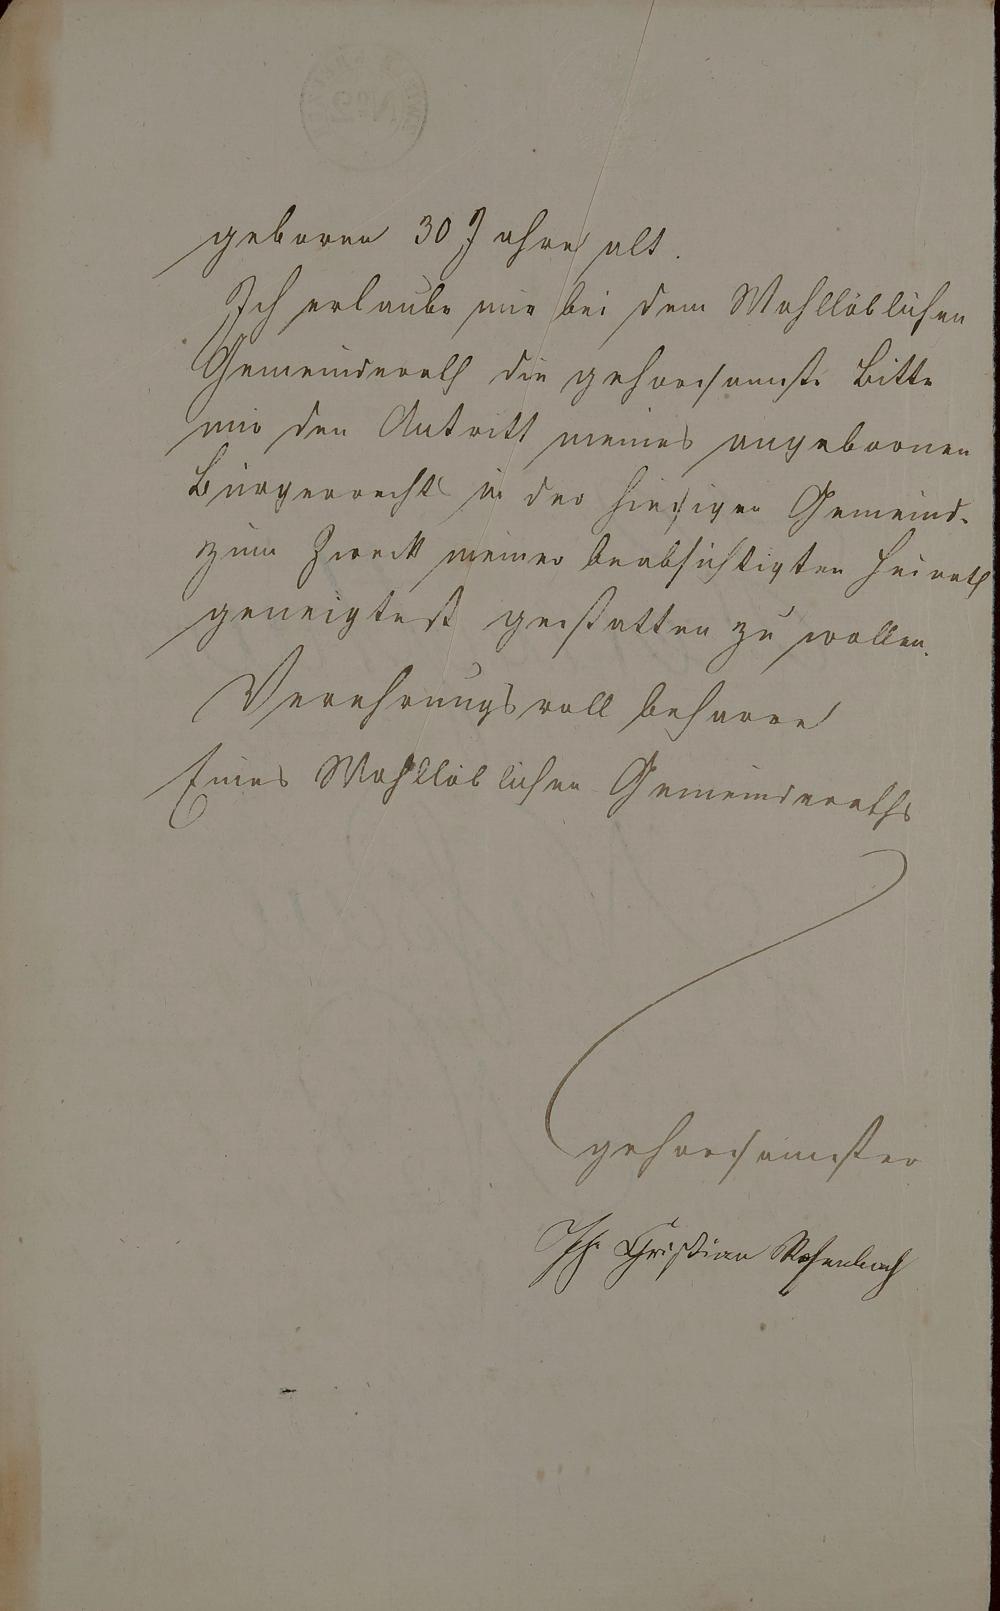 geboren 30 Jahre alt.
Ich erlaube mir bei dem Wohllöblichen
Gemeinderath die gehorsamste Bitte
mir den Antritt meines angebornen
Bürgerrechts in der hiesigen Gemeinde
zum Zweck meiner beabsichtigten Heirath
geneigtest gestatten zu wollen.
Verehrungsvoll beharre
Eines Wohllöblichen Gemeinderaths
gehorsamster
Christian